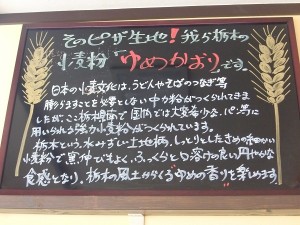 そのピザ生地！我ら栃木の
小麦粉「ゆめかおり」です。
日本の小麦文化は、うどんやそばのつなぎ等
膨らますことを必要としない中力粉がつくられてきま
したが、ここ栃木県で国内では大変希少な、パン等に
用いられる強力小麦粉がつくられています。
栃木という、水みずしい土地柄、しっとりとしたきめの細かい
小麦粉で黒伸でもよく、ふっくらと口溶けの良い円やかな
食感となり、栃木の風土からくるゆめの香りを楽しめます。